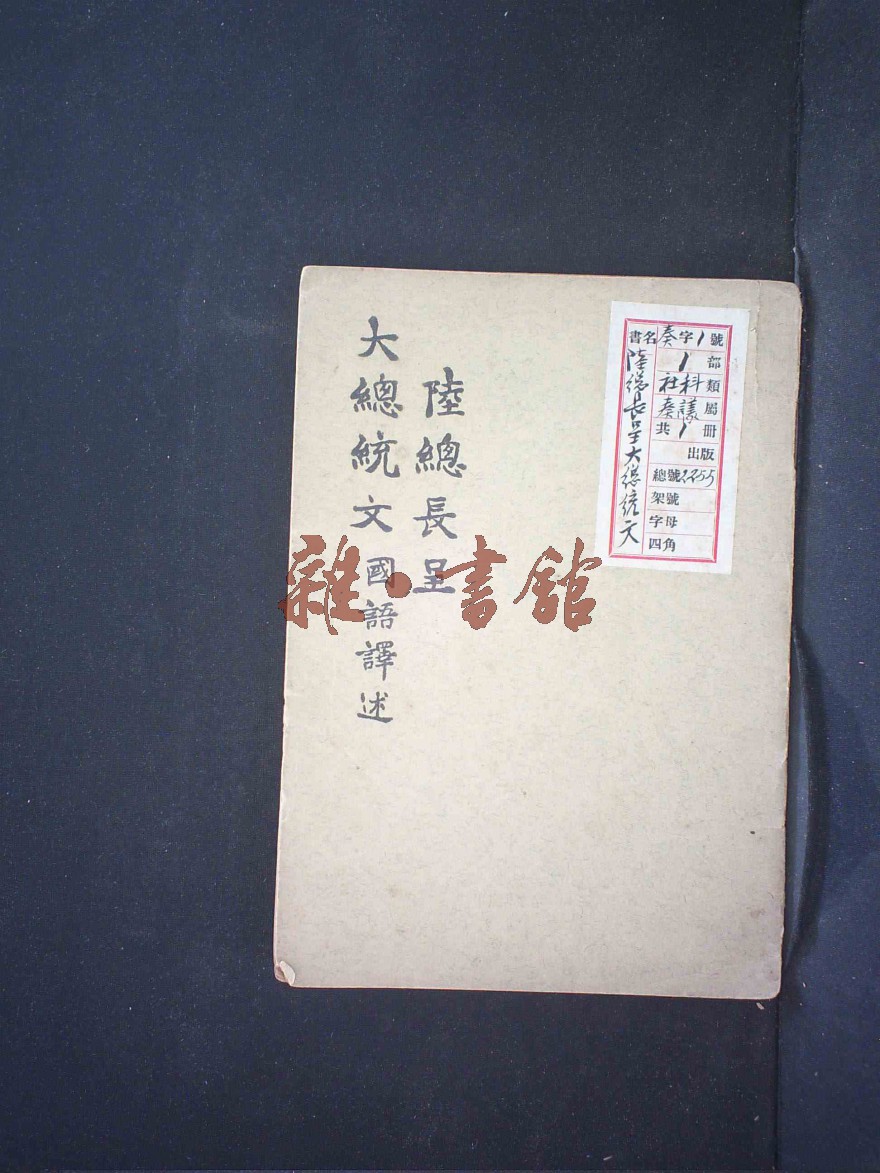 陸總長呈
大總統文國語譯述
奏字1號
1部
社科類
奏議屬
共1冊
出版
總號2255
架號
字母
四角
書名
陸總長呈大總統文
雜·書館